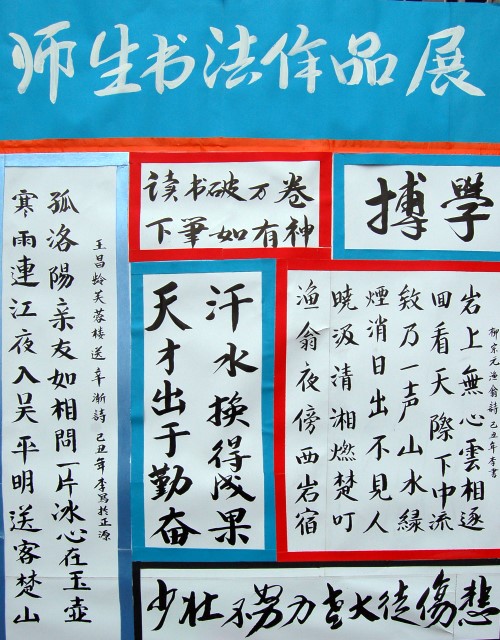 师生书法作品展
寒雨連江夜入吴平明送客楚山
孤洛陽亲友如相問一片冰心在玉壶
王昌龄芙蓉楼送辛渐詩 己丑年李寫於正源
读书破万卷
下筆如有神
搏學
天才出于勤奋
汗水换得成果
渔翁夜傍西岩宿
晓汲清湘燃楚竹
煙消日出不見人
欸乃一声山水緑
回看天際下中流
岩上無心雲相逐
柳宗元渔翁詩 己丑年李書
少壮不努力老大徒傷悲